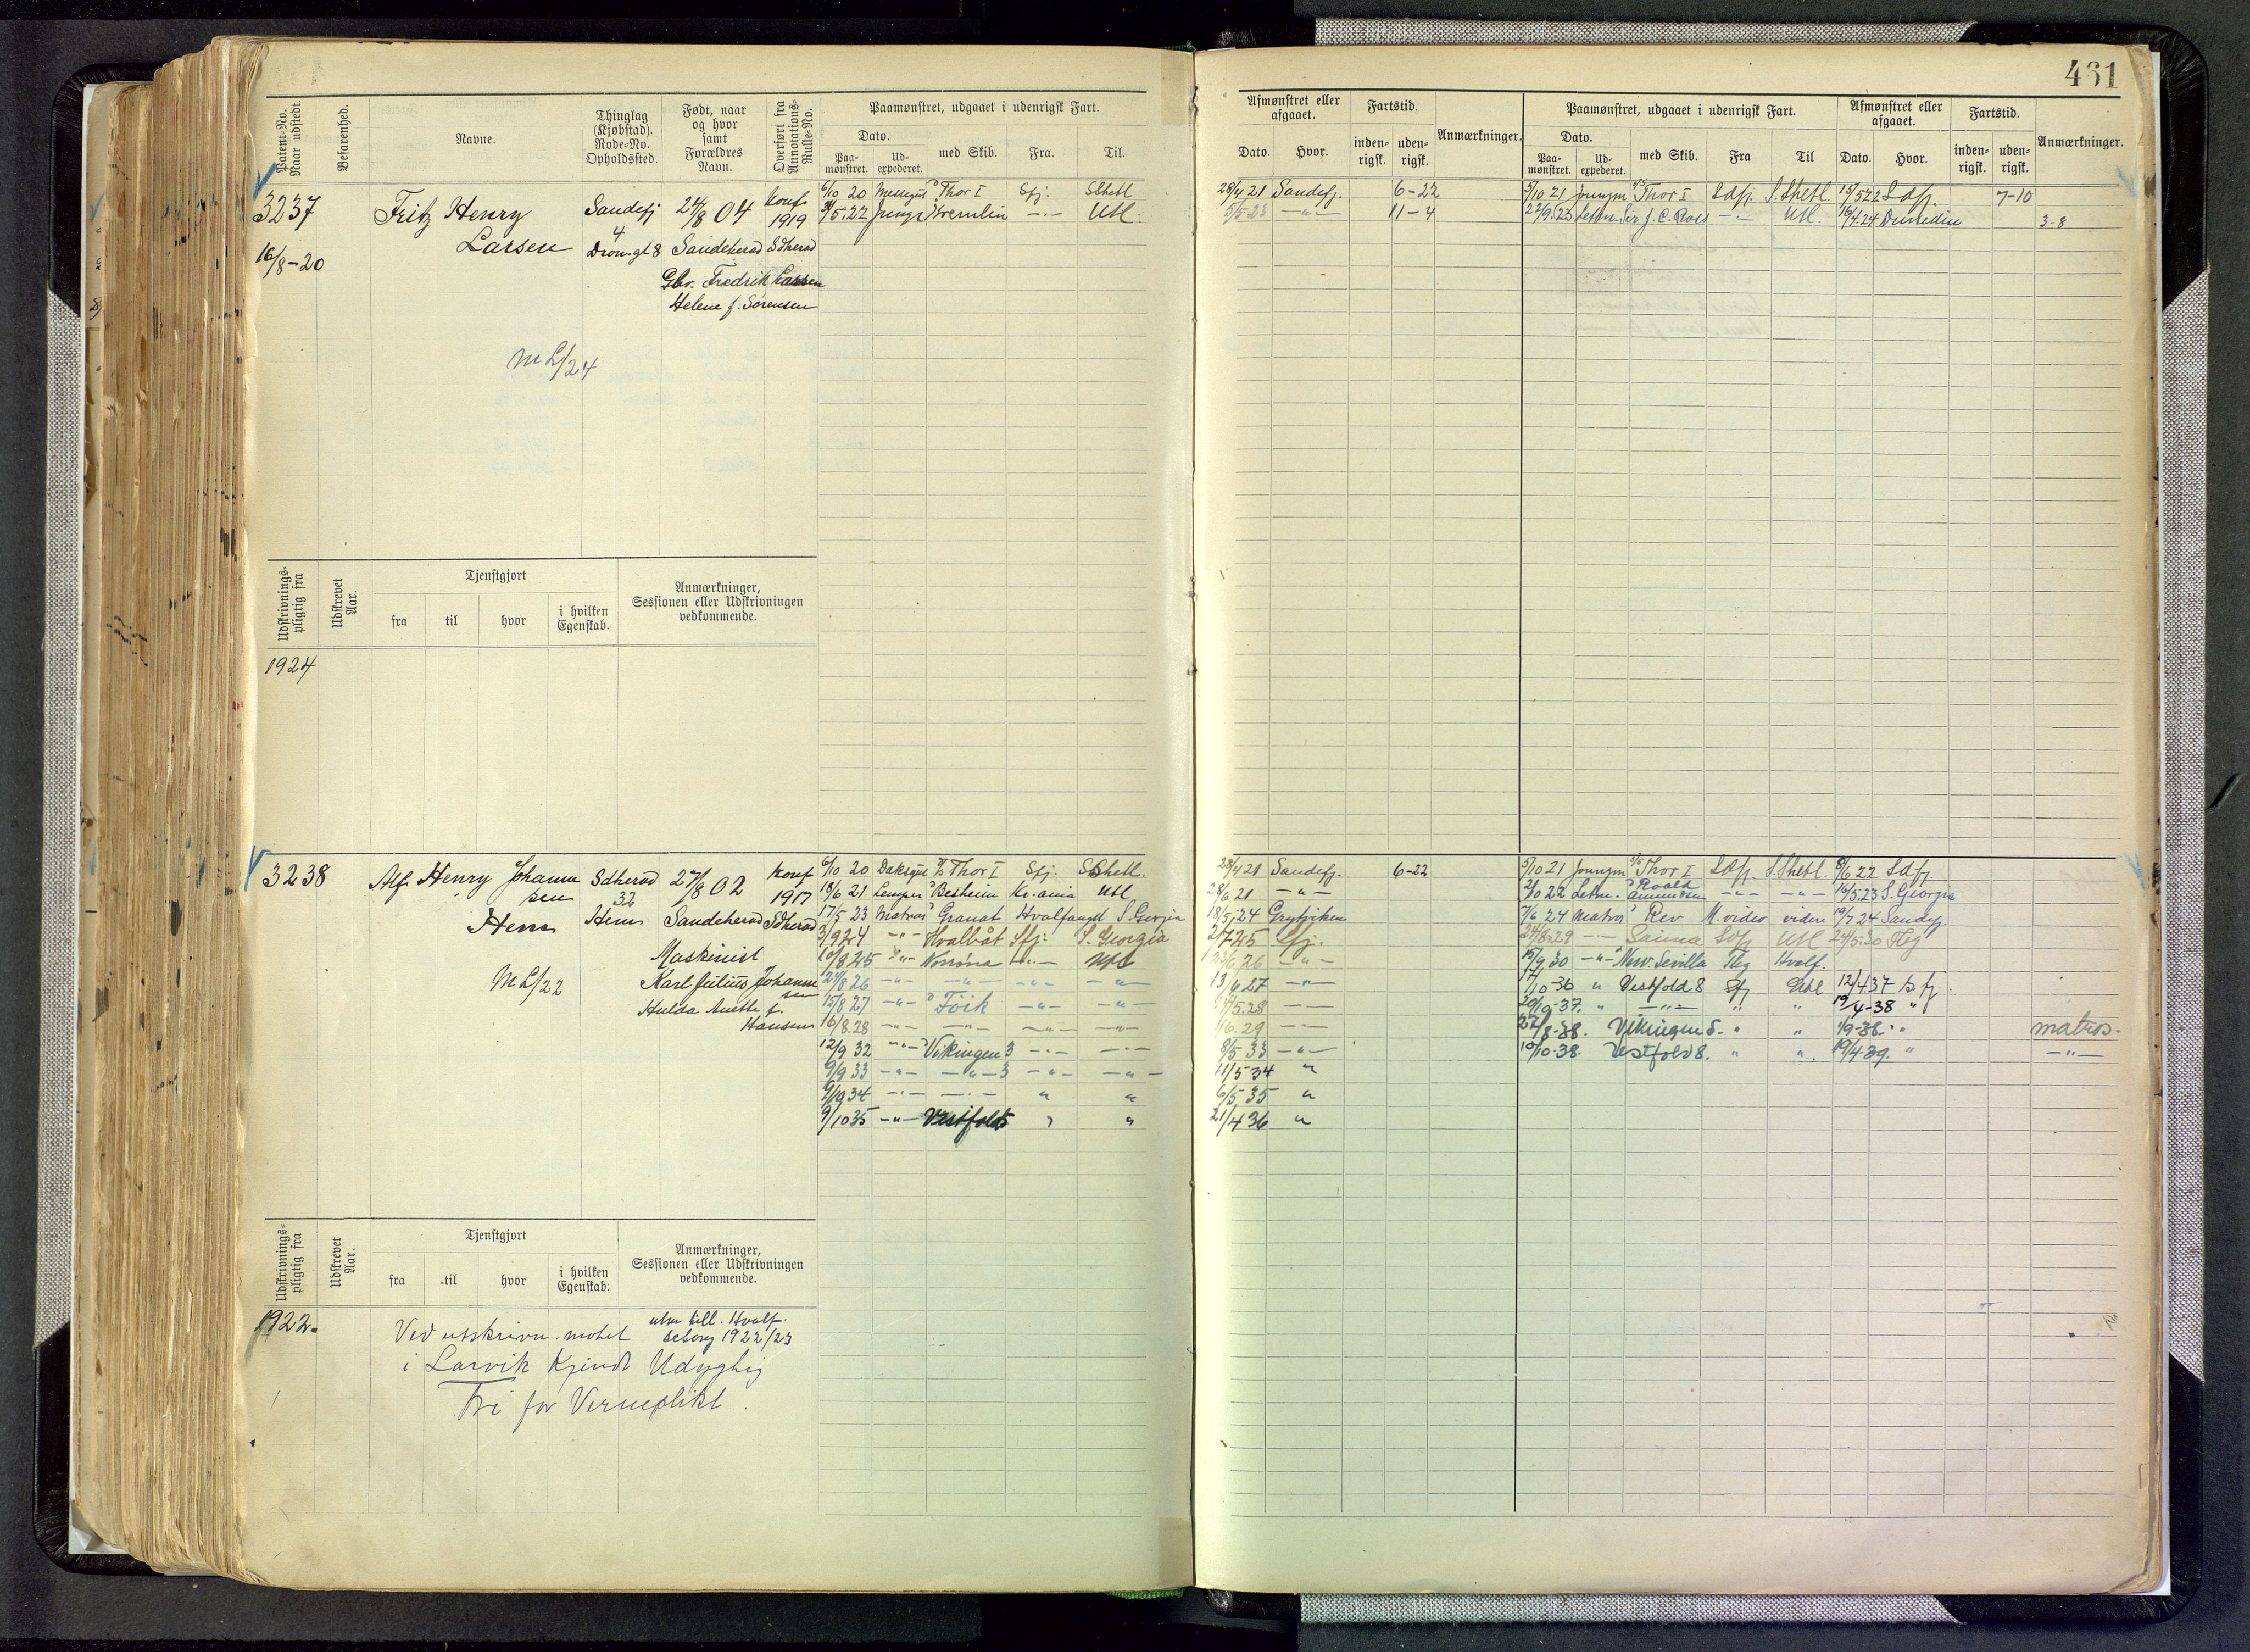 461
Patent-No. Naar udstedt.
Befarenhed.
Navne.
Thinglag (Kjøbstad). Rode-No. Opholdssted.
Født, naar og hvor samt Forældres Navn.
Overført fra Annotations-Rulle-No.
Paamønstret, udgaaet i udenrigsk Fart.
Dato.
Paa-mønstret. Ud-expederet. med Skib. Fra. Til.
Afmønstret eller afgaaet.
Dato. Hvor.
Fartstid.
inden-rigsk. uden-rigsk.
Anmærkninger.
Paamønstret, udgaaet i udenrigsk Fart.
Dato.
Paa-mønstret. Ud-expederet. med Skib. Fra Til
Afmønstret eller afgaaet.
Dato. Hvor.
Fartstid.
inden-rigsk. uden-rigsk.
Anmærkninger.
3237
16/8-20
Fritz Henry
Larsen
Sandefj
4
Dron.gt 8
24/8 04
Sandeherad
Fredrik Larsen
Helene f. Sørensen
Konf
1919
Sdherad
M L/24
6/10 20 Thor I Sfj. S Shetl
5.22 Kremlin -"- Utl.
28/4 21 Sandefj. 6-22
5/5 23 -"- 11-4
5/10 21 Joungm Thor I Sdfj. S. Shetl. 15/5 22 Sdfj. 7-10
22/9.23 Letm. Sir J. C. Ross -"- Utl. 16/4.24 Dunedin 3-8
Udskrivnings-pligtig fra
Udskrevet Aar.
Tjenstgjort
fra til hvor i hvilken Egenskab.
Anmærkninger, Sessionen eller Udskrivningen vedkommende.
1924
3238
Alf Henry Johann
sen
Hem
Sdherad
32
Hem
27/8 02
Sandeherad
Maskinist
Karl Julius Johann
sen
Hulda Anette f.
Hansen
Konf
1917
Sdherad
M L/22
6/10 20 Thor I Sfj. S Shetl.
18/6 21 Besheim Kr.ania Utl
17/5 23 Matros Granat Hvalfangst S. Georgia
3/9 24 -"- Hvalbåt Sfj. S. Georgia
10/8 25 -"- -"- Utl
24/8 26 -"- -"- -"- -"-
15/8 27 -"- -"- -"-
16/8.28 -"- -"- -"- -"-
12/9 32 -"- Vikingen 3 -"- -"-
9/9 33 -"- -"- 3 -"- -"-
9/10 34 -"- -"- " "
9/10 35 -"- Vestfold 5 " "
28/4 21 Sandefj. 6-22
28/6 21 -"-
18/5.24 Grytviken
2/7 25 Sfj.
23/6 26 -"-
13/6 27 -"-
5.28 -"-
6.29 -"-
8/5 33 -"-
11/5 34 "
6/5 35 "
21/4 36 "
5/10 21 Joungm Thor I Sdfj. S. Shetl. 8/6 22 Sdfj
2/10 22 Letm. Roald Amundsen -"- -"- 16/5.23 S. Georgia
7/6 24 Matros Rev M.video videre 19/7 24 Sandefj
24/8.29 -"- Sdfj Utl 24/5.30 Tbg
15/9 30 -"- New Sevilla Tbg Hvalf.
17/10-36 " Vestfold 8 Sfj Utl 12/4 37 Sfj
20/9-37. " -"- " " 19/4-38 "
27/8-38. Vikingen 5. " " 19-38. " matros.
10/10-38. Vestfold 8. " " 19/4-39. " -"-
Udskrivnings-pligtig fra
Udskrevet Aar.
Tjenstgjort
fra til hvor i hvilken Egenskab.
Anmærkninger, Sessionen eller Udskrivningen vedkommende.
1922.
utm till. Hvalf.
Ved utskrivn. møtet sesong 1922/23
i Larvik Kjendt Udygtig
Fri for Verneplikt.